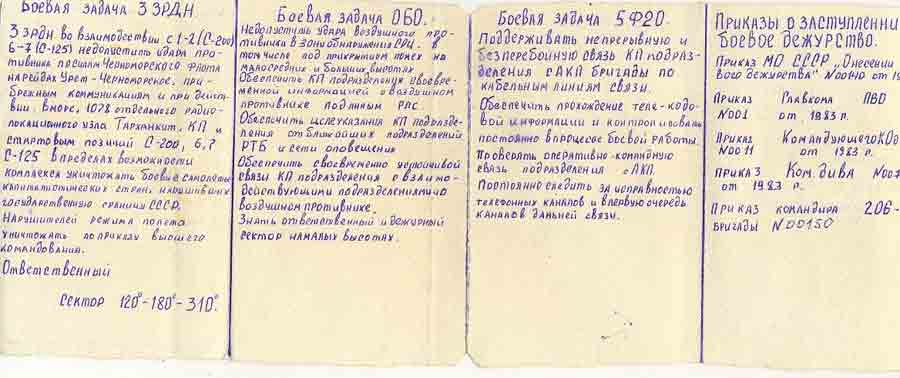 Боевая задача 3 ЗРДН.
3 зрдн во взаимодствии с 1-2 (С-200)
6-7 (С-125) недопустить удара про-
тивника по силам Черноморского флота
на рейдах Урет-Черноморское, при-
брежным коммуникациям и при дейст-
вии в море, 1078 отдельного радио-
локационного узла Тарханкит, КП и
стартовым позиций С-200, 6,7
С-125 в пределах возможности
комплекса уничтожать боевые самолеты
капиталистических стран, нарушивших
государственную границу СССР.
Нарушителей режима полета
уничтожать по приказу высшего
командования.
Ответственный
сектор 120°-180°-310°
Боевая задача ОБО.
Недопустить удара воздушного про-
тивника в зоне обнаружения СРЦ. в
том числе под прикрытием помех на
малых средних и больших высотах
Обеспечить КП подразделения своевре-
менной информацией о воздушном
противнике по данным РЛС.
Обеспечить целеуказания КП подразде-
ления от ближайших подразделений
РТБ и сети оповещения
Обеспечить своевременно устойчивой
связи КП подразделения с взаимо-
действующими подразделениями о
воздушном противнике.
Знать ответственный и дежурный
сектор на малых высотах.
Боевая задача 5Ф20.
Поддерживать непрерывную и
безперебойную связь КП подраз-
деления с АКП бригады по
кабельным линиям связи.
Обеспечить прохождение теле-кодо-
вой информации и контролировать
постоянно в процессе боевой работы.
Проверять оперативно-командную
связь подразделения с АКП.
Постоянно следить за исправностью
телефонных каналов и в первую очередь
каналов дальней связи.
Приказы о заступлении
Боевое дежурство.
Приказ МО СССР „Онесении
вого дежурства" N00140 от 19
Приказ Главкома ПВО
N001 от 1983 г.
Приказ Командующего КОд
N0011 от 1983 г.
Приказ Ком. дива N007
от 1983 г.
Приказ командира 206-
бригады N00150